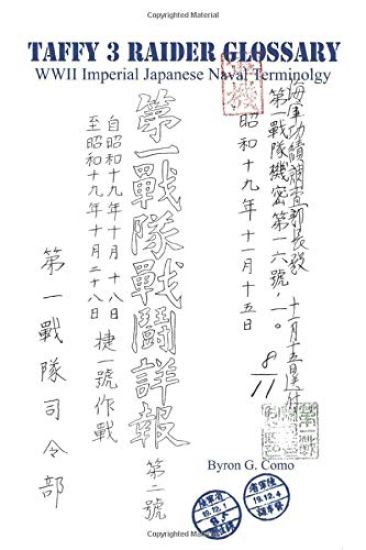 TAFFY 3 RAIDER GLOSSARY
WWII Imperial Japanese Naval Terminolgy
海軍功績調査部長殿
第一戰隊機密第一六號ノ一。
昭和十九年十一月十五日
8/11
第一戰隊戰鬪詳報
第二號
自昭和十九年十月十八日
至昭和十九年十月二十八日
捷一號作戰
第一戰隊司令部
Byron G. Como
19.12.4